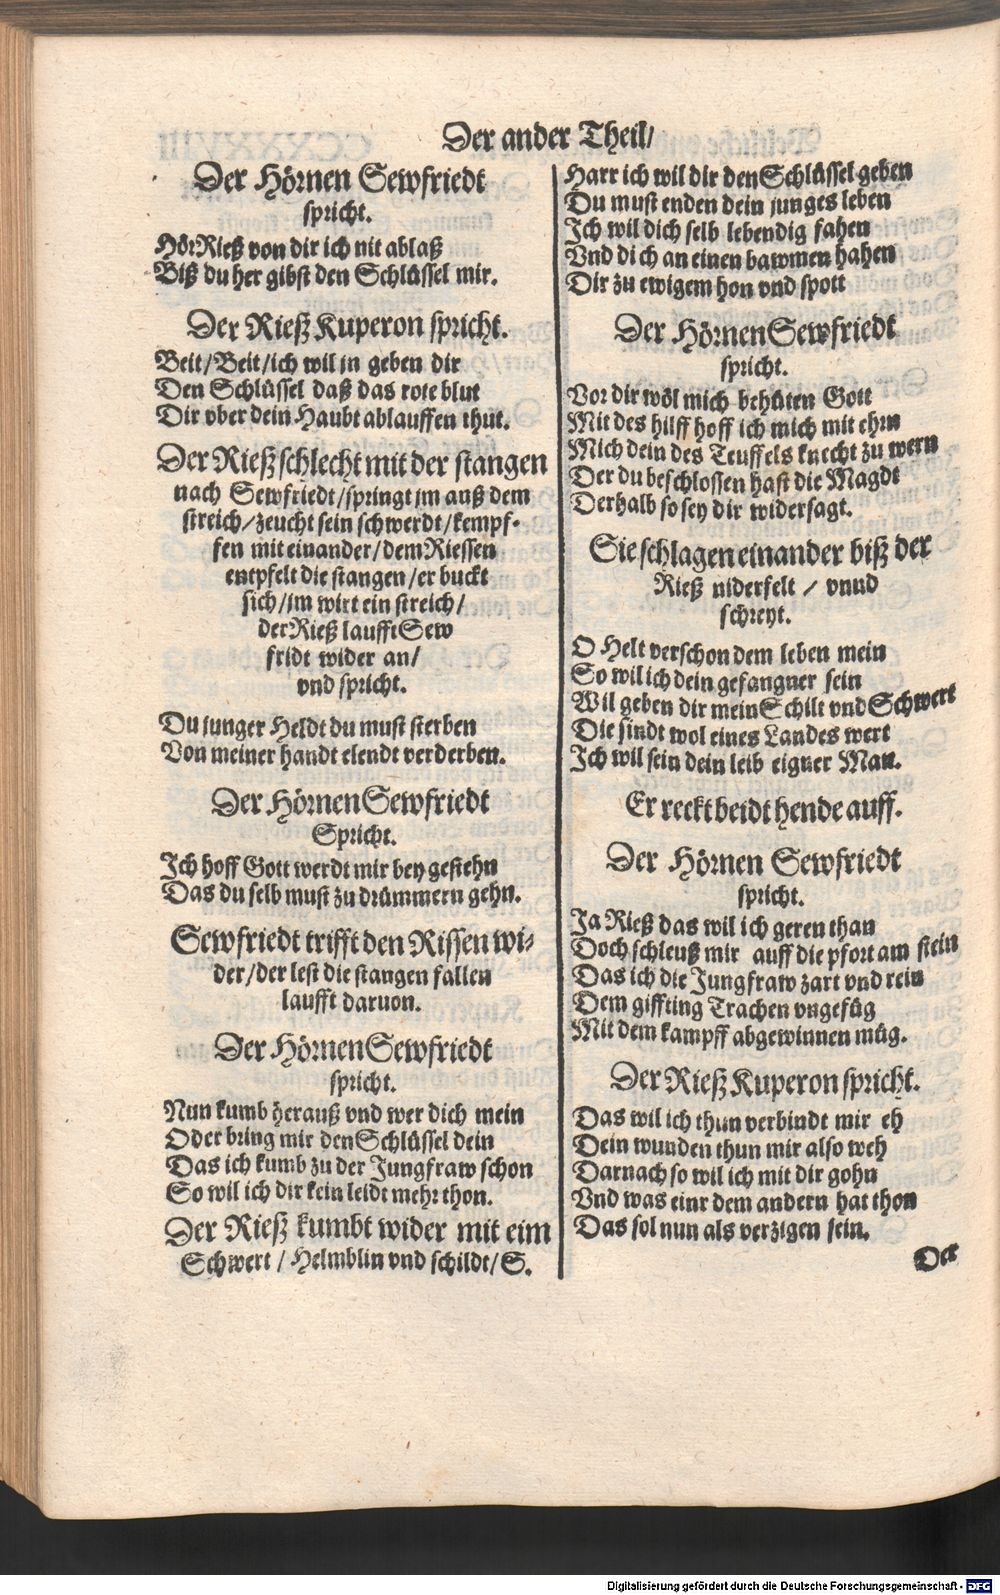 Der ander Theil/
Der Hörnen Sewfriedt
spricht.
Hör Rieß von dir ich nit ablaß
Biß du her gibst den Schlüssel mir.
Der Rieß Kuperon spricht.
Beit/Beit/ich wil jn geben dir
Den Schlüssel daß das rote blut
Dir vber dein Haubt ablauffen thut.
Der Rieß schlecht mit der stangen
nach Sewfriedt/springt jm auß dem
streich/zeucht sein schwerdt/kempf-
fen mit einander/dem Riessen
entpfelt die stangen/er buckt
sich/im wirt ein streich/
der Rieß laufft Sew
fridt wider an/
vnd spricht.
Du junger Heldt du must sterben
Von meiner handt elendt verderben.
Der Hörnen Sewfriedt
Spricht.
Ich hoff Gott werdt mir bey gestehn
Das du selb must zu drümmern gehn.
Sewfriedt trifft den Rissen wi-
der/der lest die stangen fallen
laufft daruon.
Der Hörnen Sewfriedt
spricht.
Nun kumb herauß vnd wer dich mein
Oder bring mir den Schlüssel dein
Das ich kumb zu der Jungfraw schon
So wil ich dir kein leidt mehr thon.
Der Rieß kumbt wider mit eim
Schwert / Helmblin vnd schildt/ S.
Harr ich wil dir den Schlüssel geben
Du must enden dein junges leben
Ich wil dich selb lebendig fahen
Vnd dich an einen bawmen hahen
Dir zu ewigem hon vnd spott
Der Hörnen Sewfriedt
spricht.
Vor dir wöl mich behüten Gott
Mit des hilff hoff ich mich mit ehrn
Mich dein des Teuffels knecht zu wern
Der du beschlossen hast die Magdt
Derhalb so sey dir widersagt.
Sie schlagen einander biß der
Rieß niderfelt / vnnd
schreyt.
O Helt verschon dem leben mein
So wil ich dein gefangner sein
Wil geben dir mein Schilt vnd Schwert
Die sindt wol eines Landes wert
Ich wil sein dein leib eigner Man.
Er reckt beidt hende auff.
Der Hörnen Sewfriedt
spricht.
Ja Rieß das wil ich geren than
Doch schleuß mir auff die pfort am stein
Das ich die Jungfraw zart vnd rein
Dem giffting Trachen vngefüg
Mit dem kampff abgewinnen müg.
Der Rieß Kuperon spricht.
Das wil ich thun verbindt mir eh
Dein wunden thun mir also weh
Darnach so wil ich mit dir gohn
Vnd was einr dem andern hat thon
Das sol nun als verzigen sein.
Der
Digitalisierung gefördert durch die Deutsche Forschungsgemeinschaft - DFG